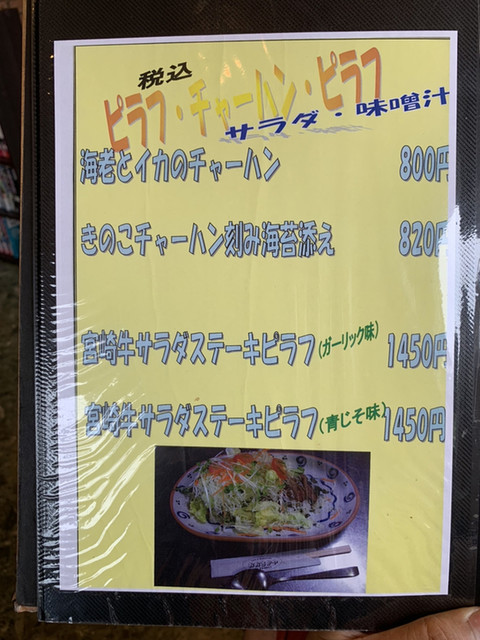 税込
ピラフ・チャーハン・ピラフ
サラダ・味噌汁
海老とイカのチャーハン 800円
きのこチャーハン刻み海苔添え 820円
宮崎牛サラダステーキピラフ(ガーリック味) 1450円
宮崎牛サラダステーキピラフ(青じそ味) 1450円